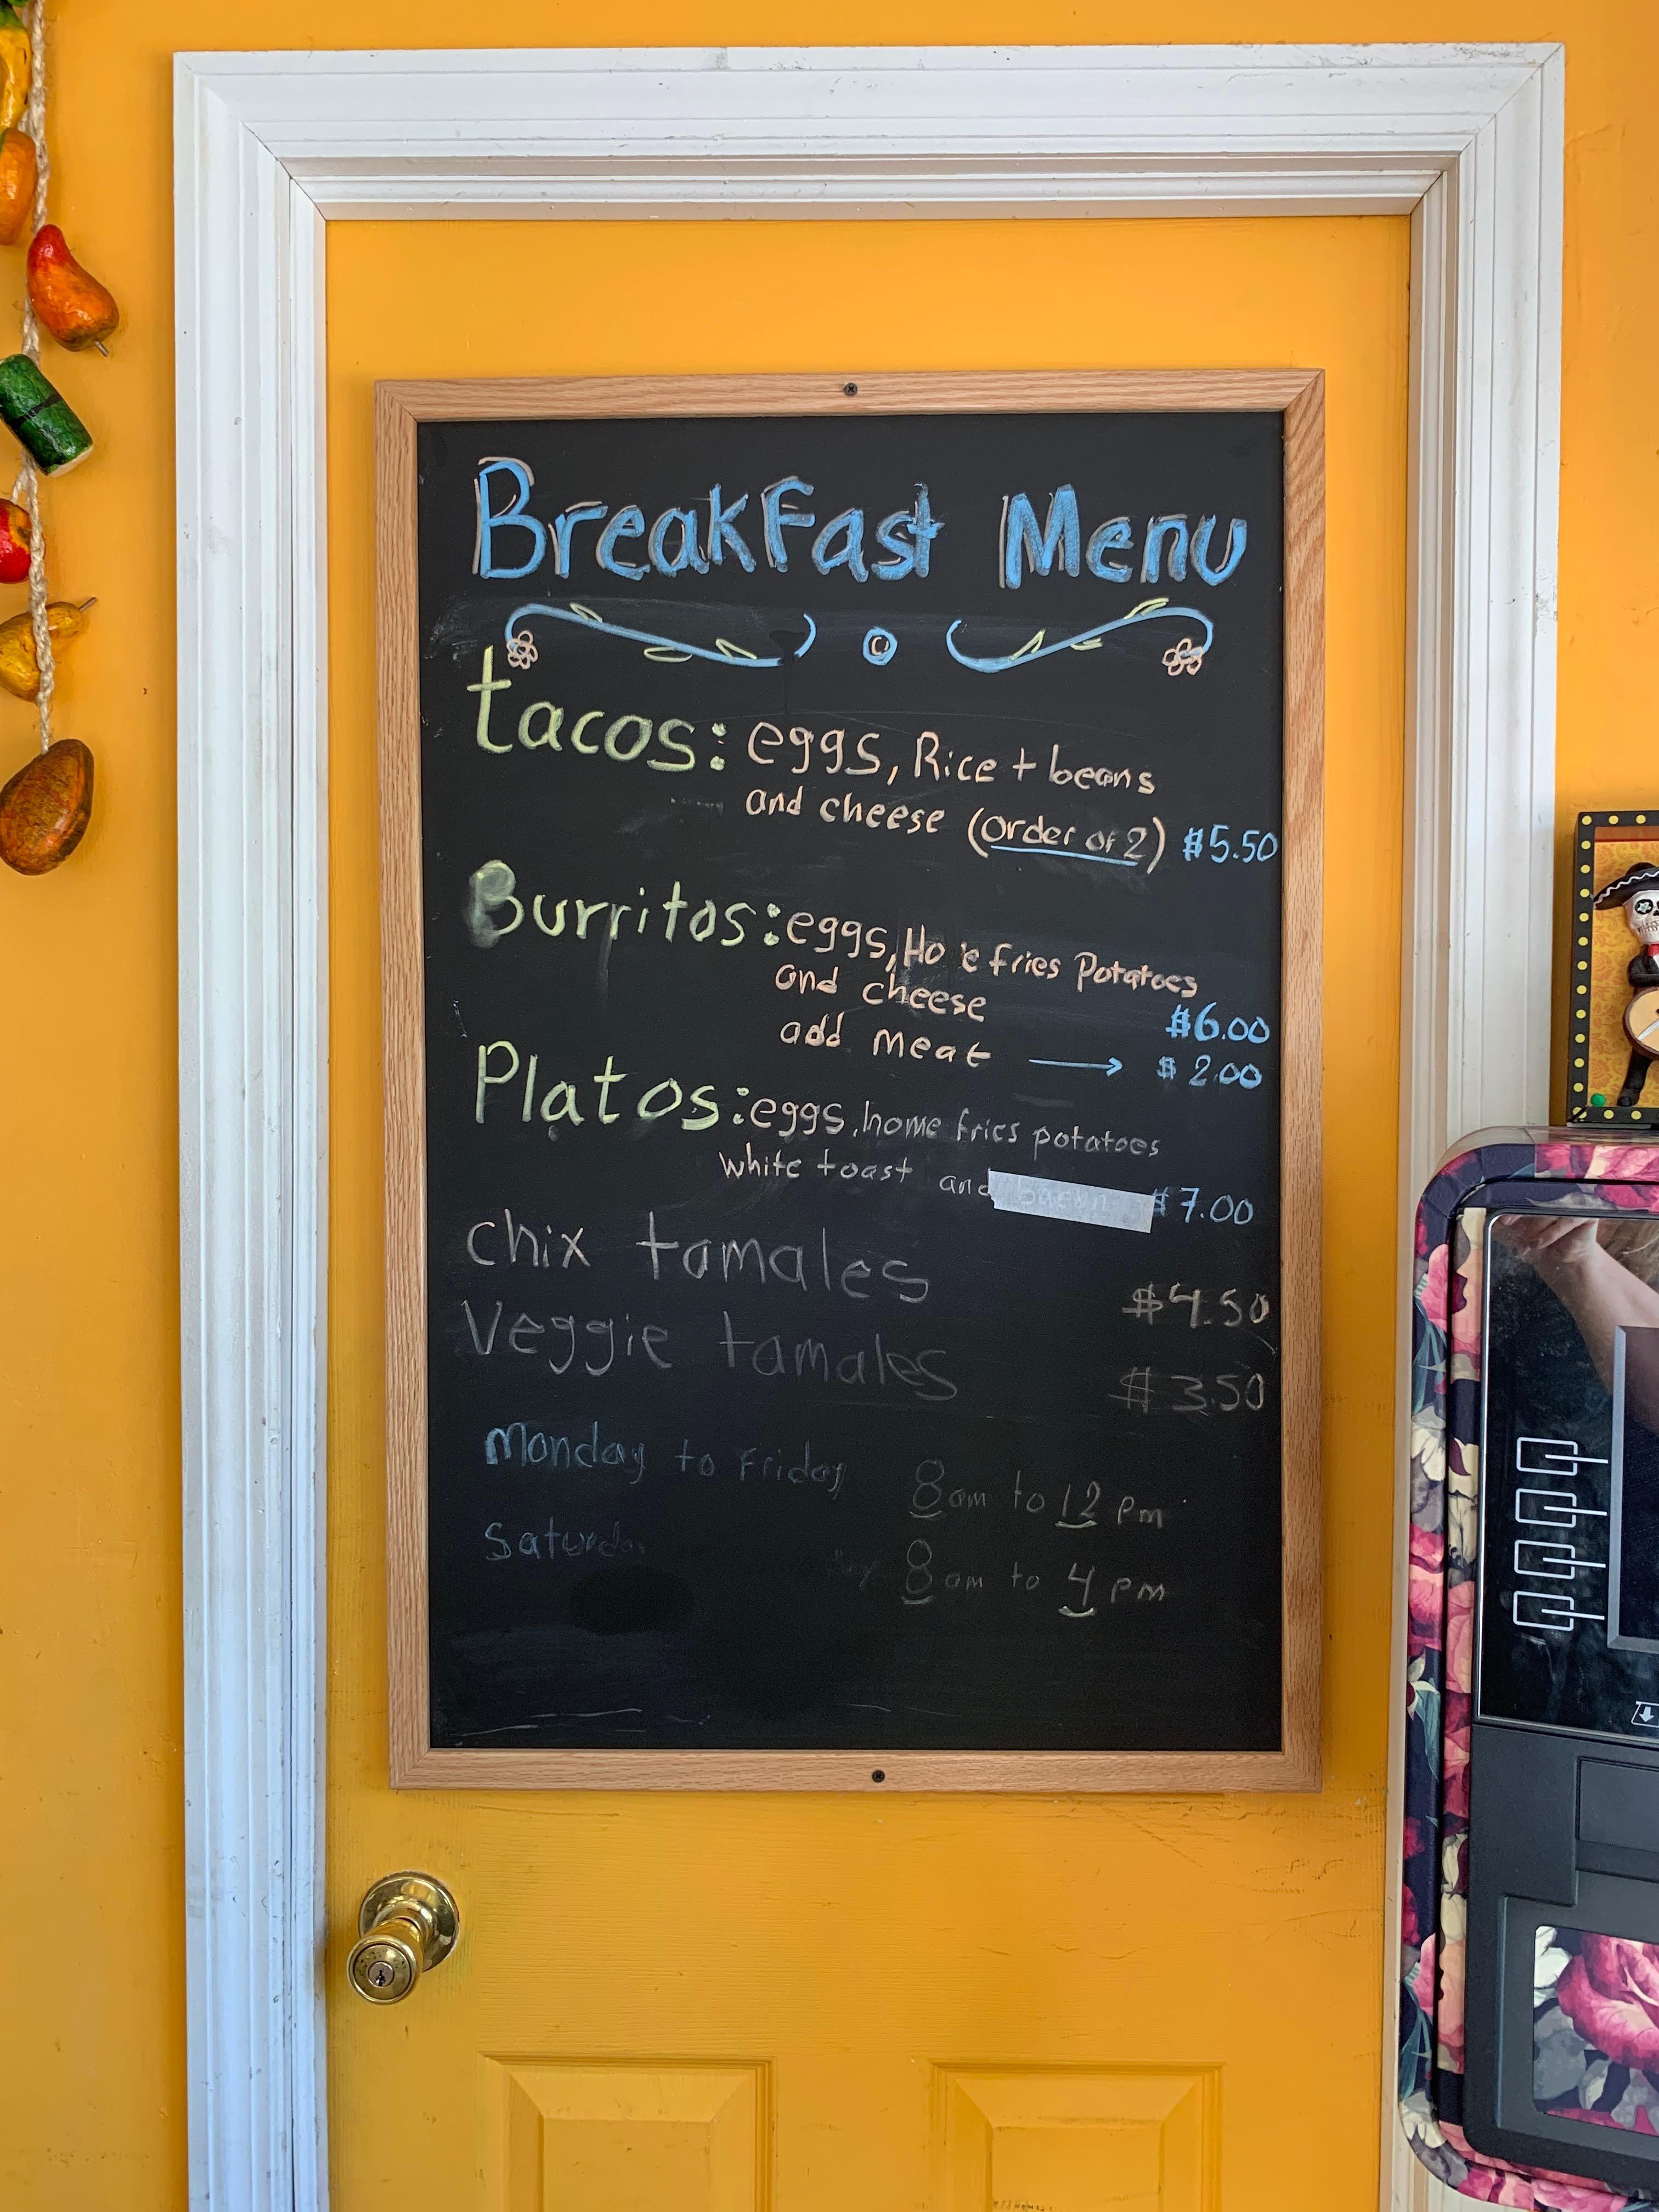 BreakFast Menu
tacos: eggs, Rice + beans
and cheese (order of 2) $5.50
Burritos: eggs, Ho e fries Potatoes
and cheese
$6.00
add meat → $2.00
Platos: eggs, home fries potatoes
white toast and Bacon $7.00
chix tamales $4.50
Veggie tamales $3.50
Monday to Friday 8am to 12 pm
Saturda 8am to 4 pm